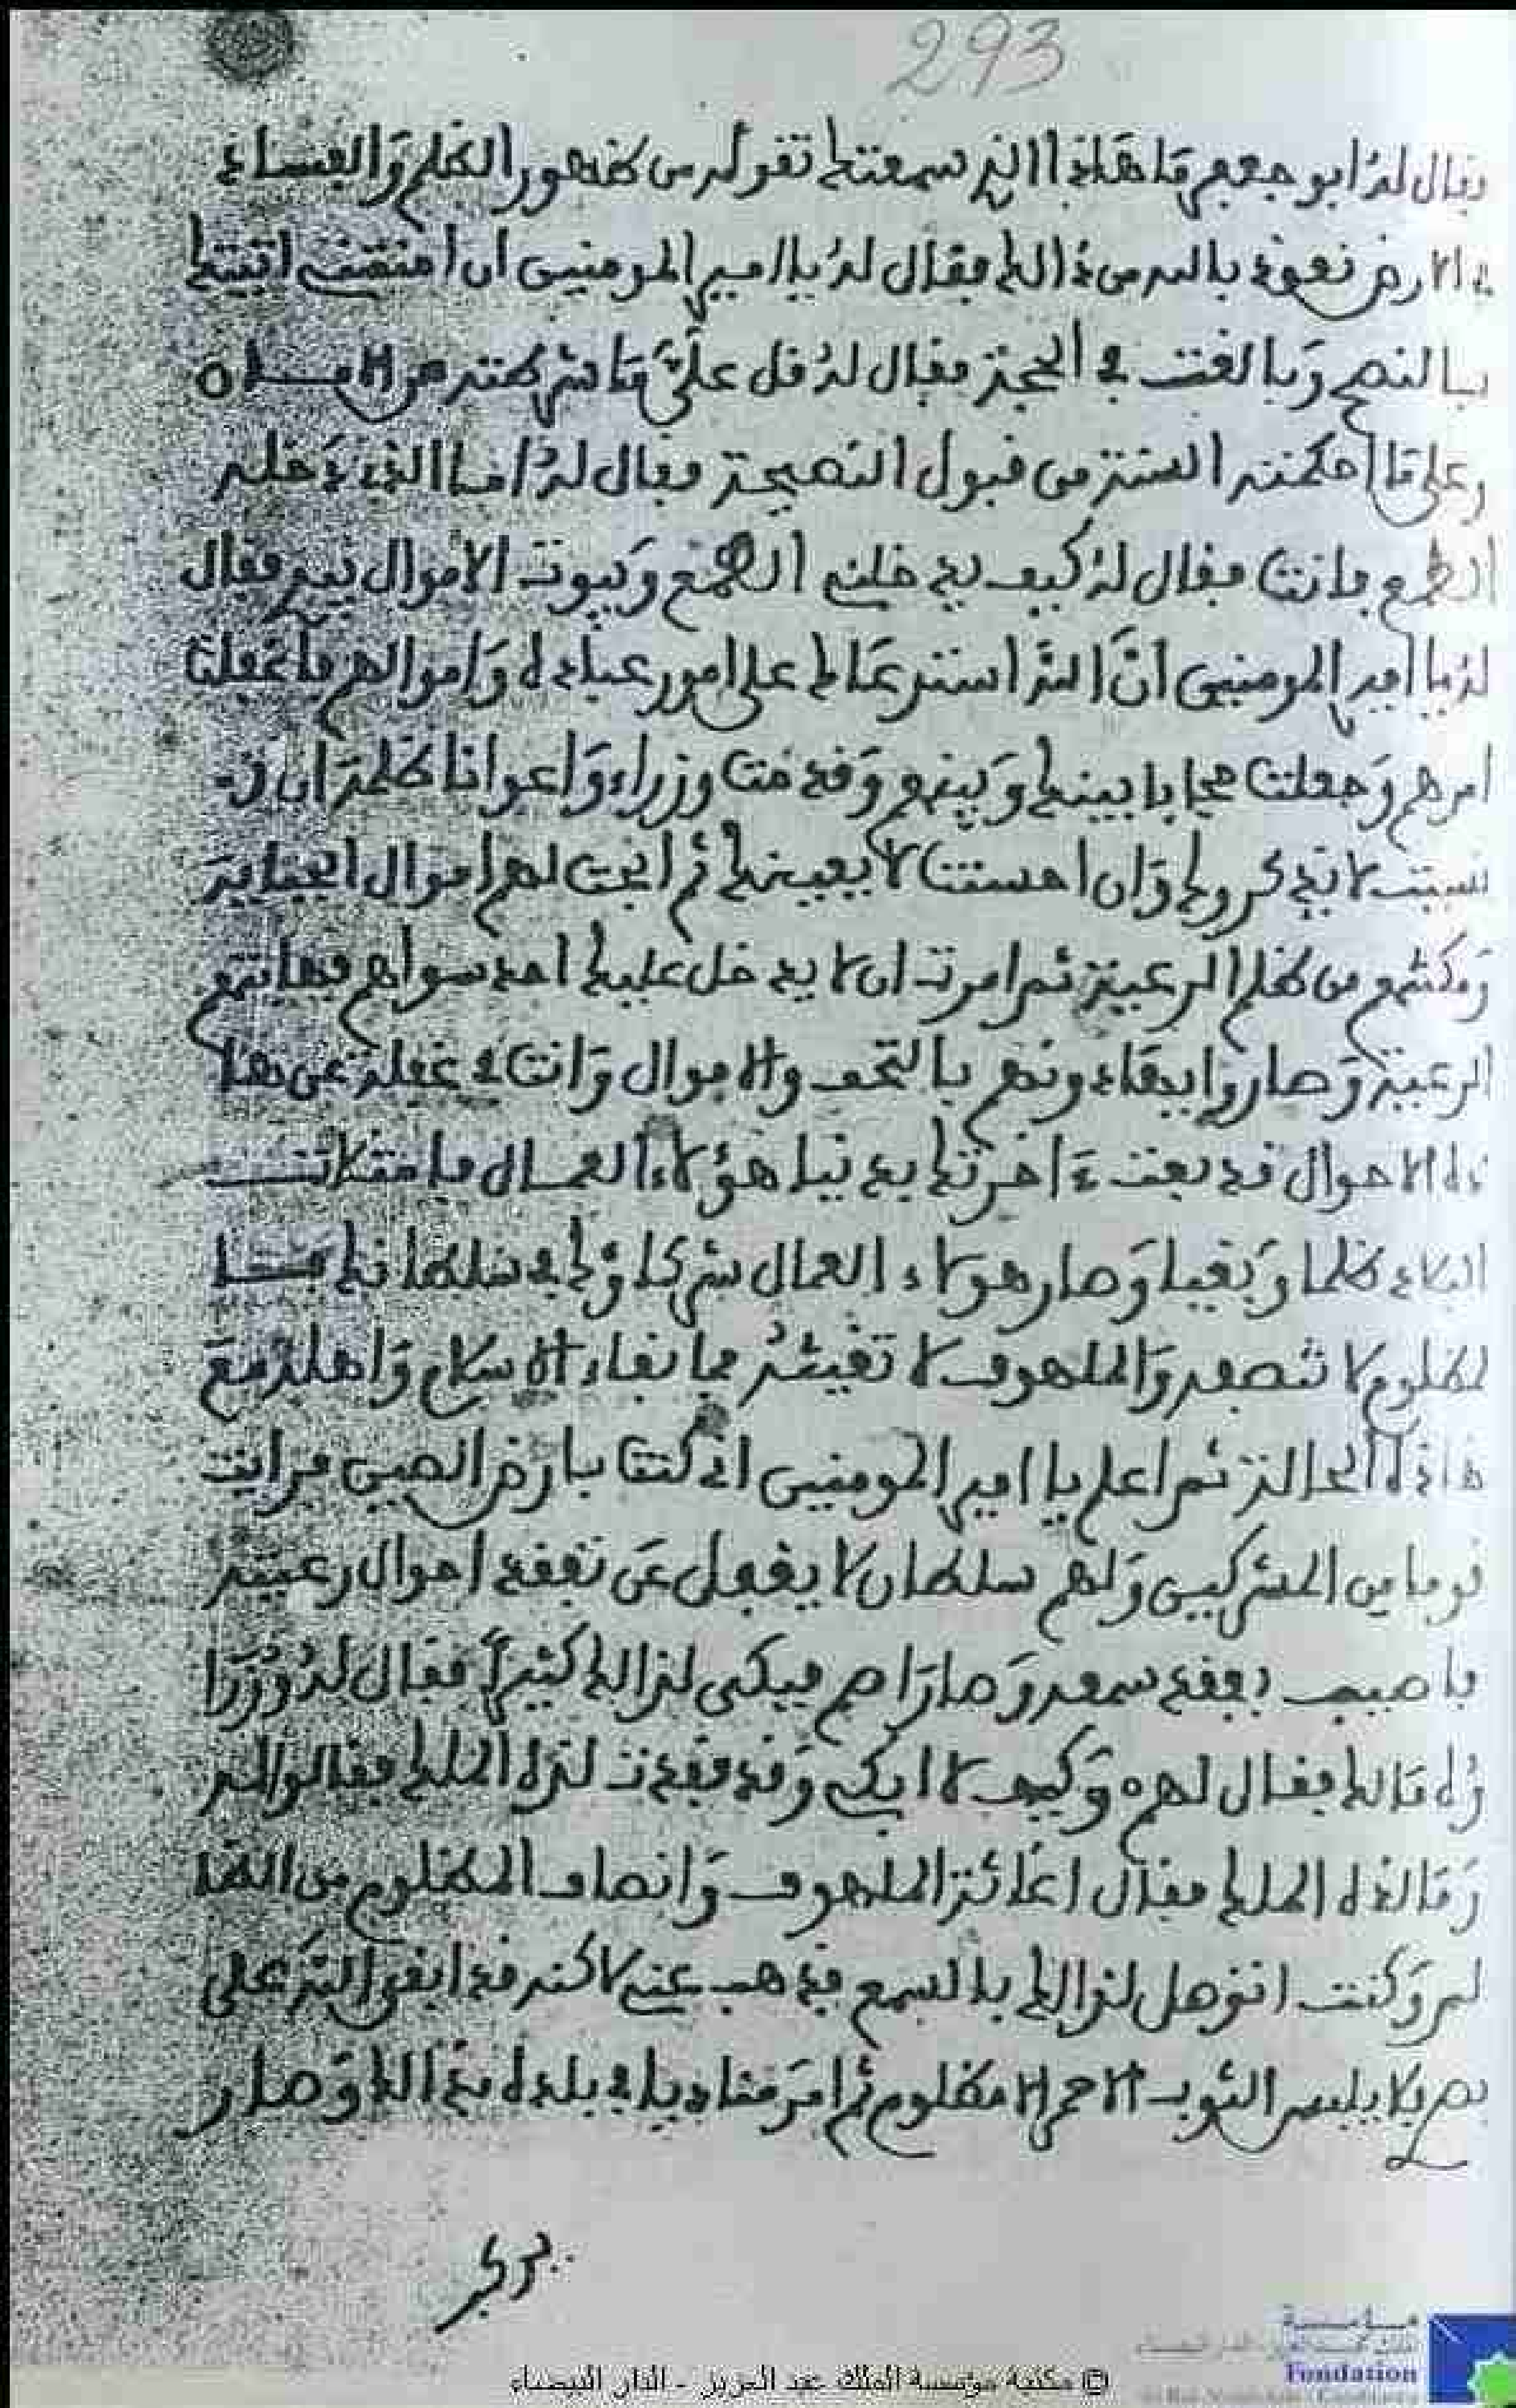 293
فقال له ابو جعفر ما هاذا الذي سمعتك تقوله من ظهور الظلم والفساد
في الارض نعوذ بالله من ذالك فقال له يا امير المومنين ان امنتني اتيتك
بالنصح وبالغت في الحجة فقال له قل علي ما شرطته من الامان
وعلى ما امكنته السنة من قبول النصيحة فقال له اما الذي دخله
الطمع فانت فقال له كيف يدخلني الطمع وبيوت الاموال بيدي فقال
له يا امير المومنين ان الله استرعاك على امور عباده واموالهم فاغفلت
امرهم وجعلت حجابا بينك وبينهم وقدمت وزراء واعوانا ظلمة ان
نسيت لا يذكروك وان احسنت لا يعينك ثم ابحت لهم اموال الجباية
ومكنتهم من ظلم الرعية ثم امرت ان لا يدخل عليك احد سواهم فهابتهم
الرعية وصاروا يهادونهم بالتحف والاموال وانت في غفلة عن هذا
الاحوال قد بعت ءاخرتك بدنيا هؤلاء العمال فامتلات
البلاد ظلما وبغيا وصار هولاء العمال شركاؤك في سلطانك
لمظلوم لا تنصفه والملهوف لا تغيثه فما بقاء الاسلام واهله مع
هاذه الحالة ثم اعلم يا امير المومنين اني كنت بارض الصين فرايت
قوما من المشركين ولهم سلطان لا يغفل عن تفقد احوال رعيته
فاصيب بفقد سمعه وصار اصم فبكى لذالك كثيرا فقال له وزرا
ؤه مالك فقال لهم وكيف لا ابكي وقد فقدت لذة الملك فقالوا له
وما لذة الملك فقال اغاثة الملهوف وانصاف المظلوم من الظا
لم وكنت اتوصل لذالك بالسمع فذهب عني لاكنه قد ابقى الله علي
بصري لا يلبس الثوب الاحمر الا مظلوم ثم امر مناديا في بلده بذالك وصار
يركب
© مكتبة مؤسسة الملك عبد العزيز - الدار البيضاء
مؤسسة
Fondation